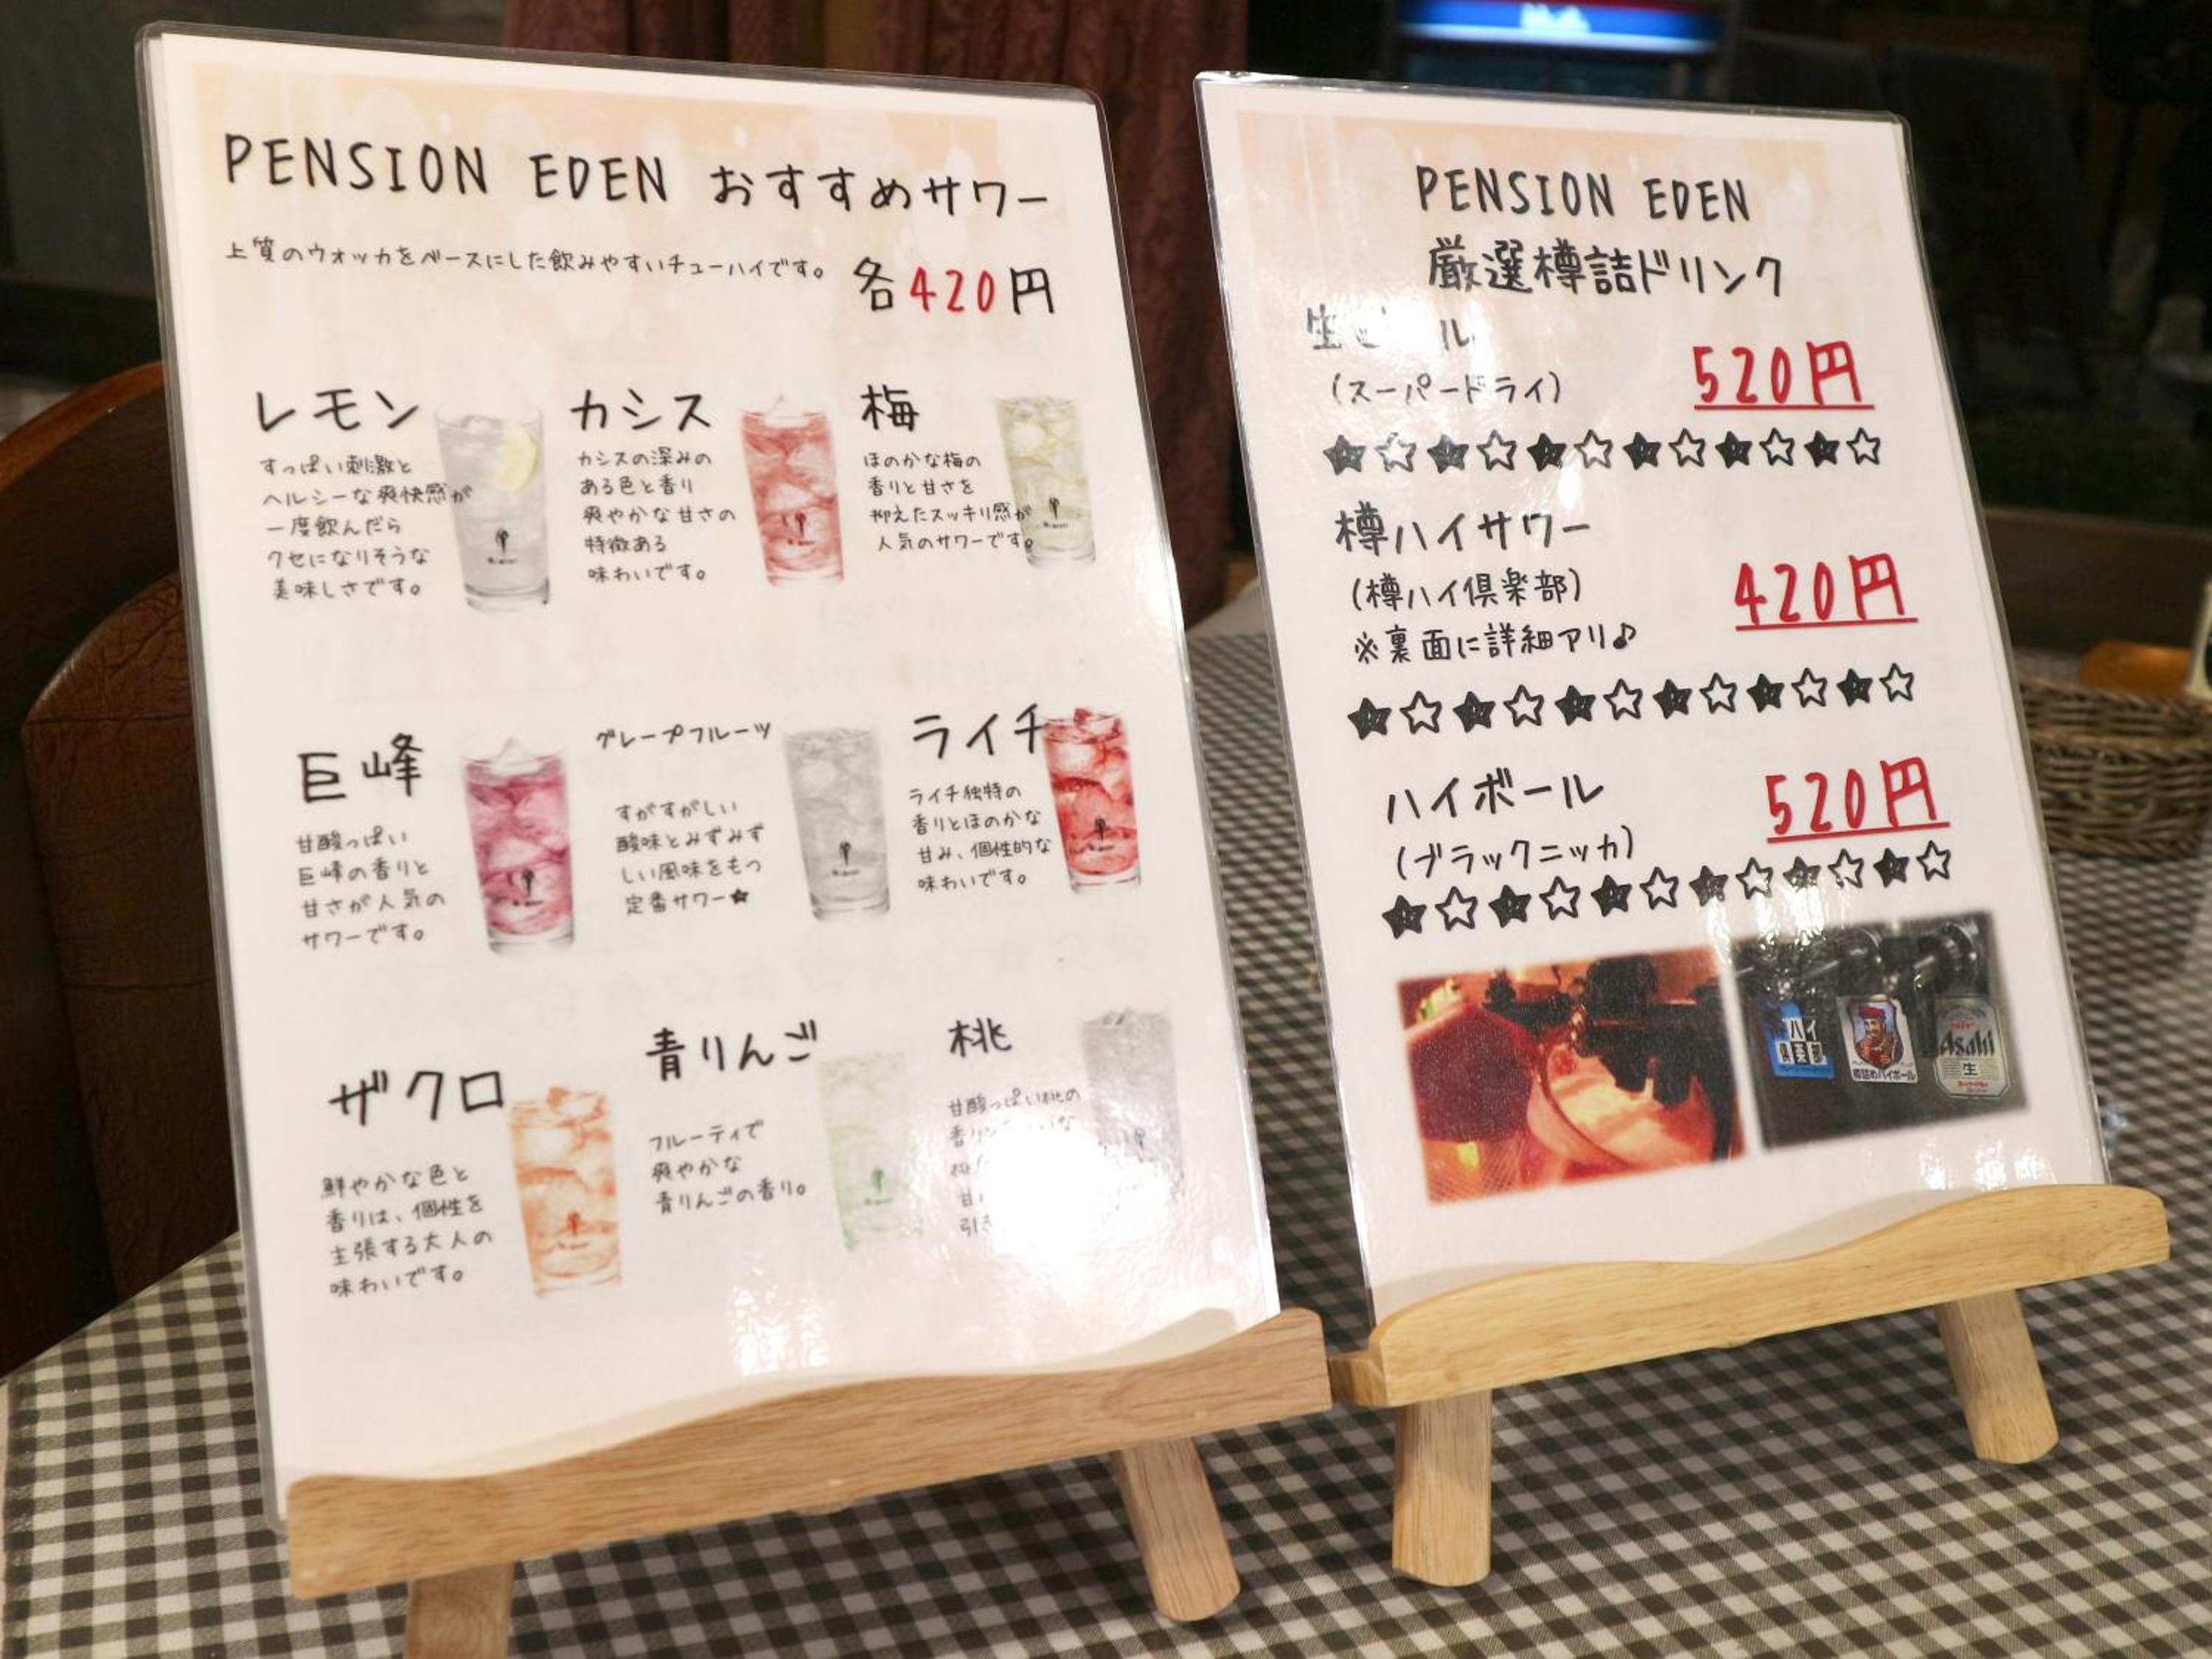 PENSION EDEN おすすめサワー
上質のウォッカをベースにした飲みやすいチューハイです。
各420円
レモン
すっぱい刺激と
ヘルシーな爽快感が
一度飲んだら
クセになりそうな
美味しさです。
カシス
カシスの深みの
ある色と香り
爽やかな甘さの
特徴ある
味わいです。
梅
ほのかな梅の
香りと甘さを
抑えたスッキリ感が
人気のサワーです。
巨峰
甘酸っぱい
巨峰の香りと
甘さが人気の
サワーです。
グレープフルーツ
すがすがしい
酸味とみずみず
しい風味をもつ
定番サワー★
ライチ
ライチ独特の
香りとほのかな
甘み、個性的な
味わいです。
ザクロ
鮮やかな色と
香りは、個性を
主張する大人の
味わいです。
青りんご
フルーティで
爽やかな
青りんごの香り。
桃
甘酸っぱい桃の
PENSION EDEN
厳選樽詰ドリンク
(スーパードライ)
520円
★☆★☆★☆★☆★☆★☆
樽ハイサワー
(樽ハイ倶楽部)
420円
※裏面に詳細アリ♪
★☆★☆★☆★☆★☆★☆
ハイボール
520円
(ブラックニッカ)
★☆★☆★☆★☆★☆★☆
樽詰めハイボール
Asahi
生